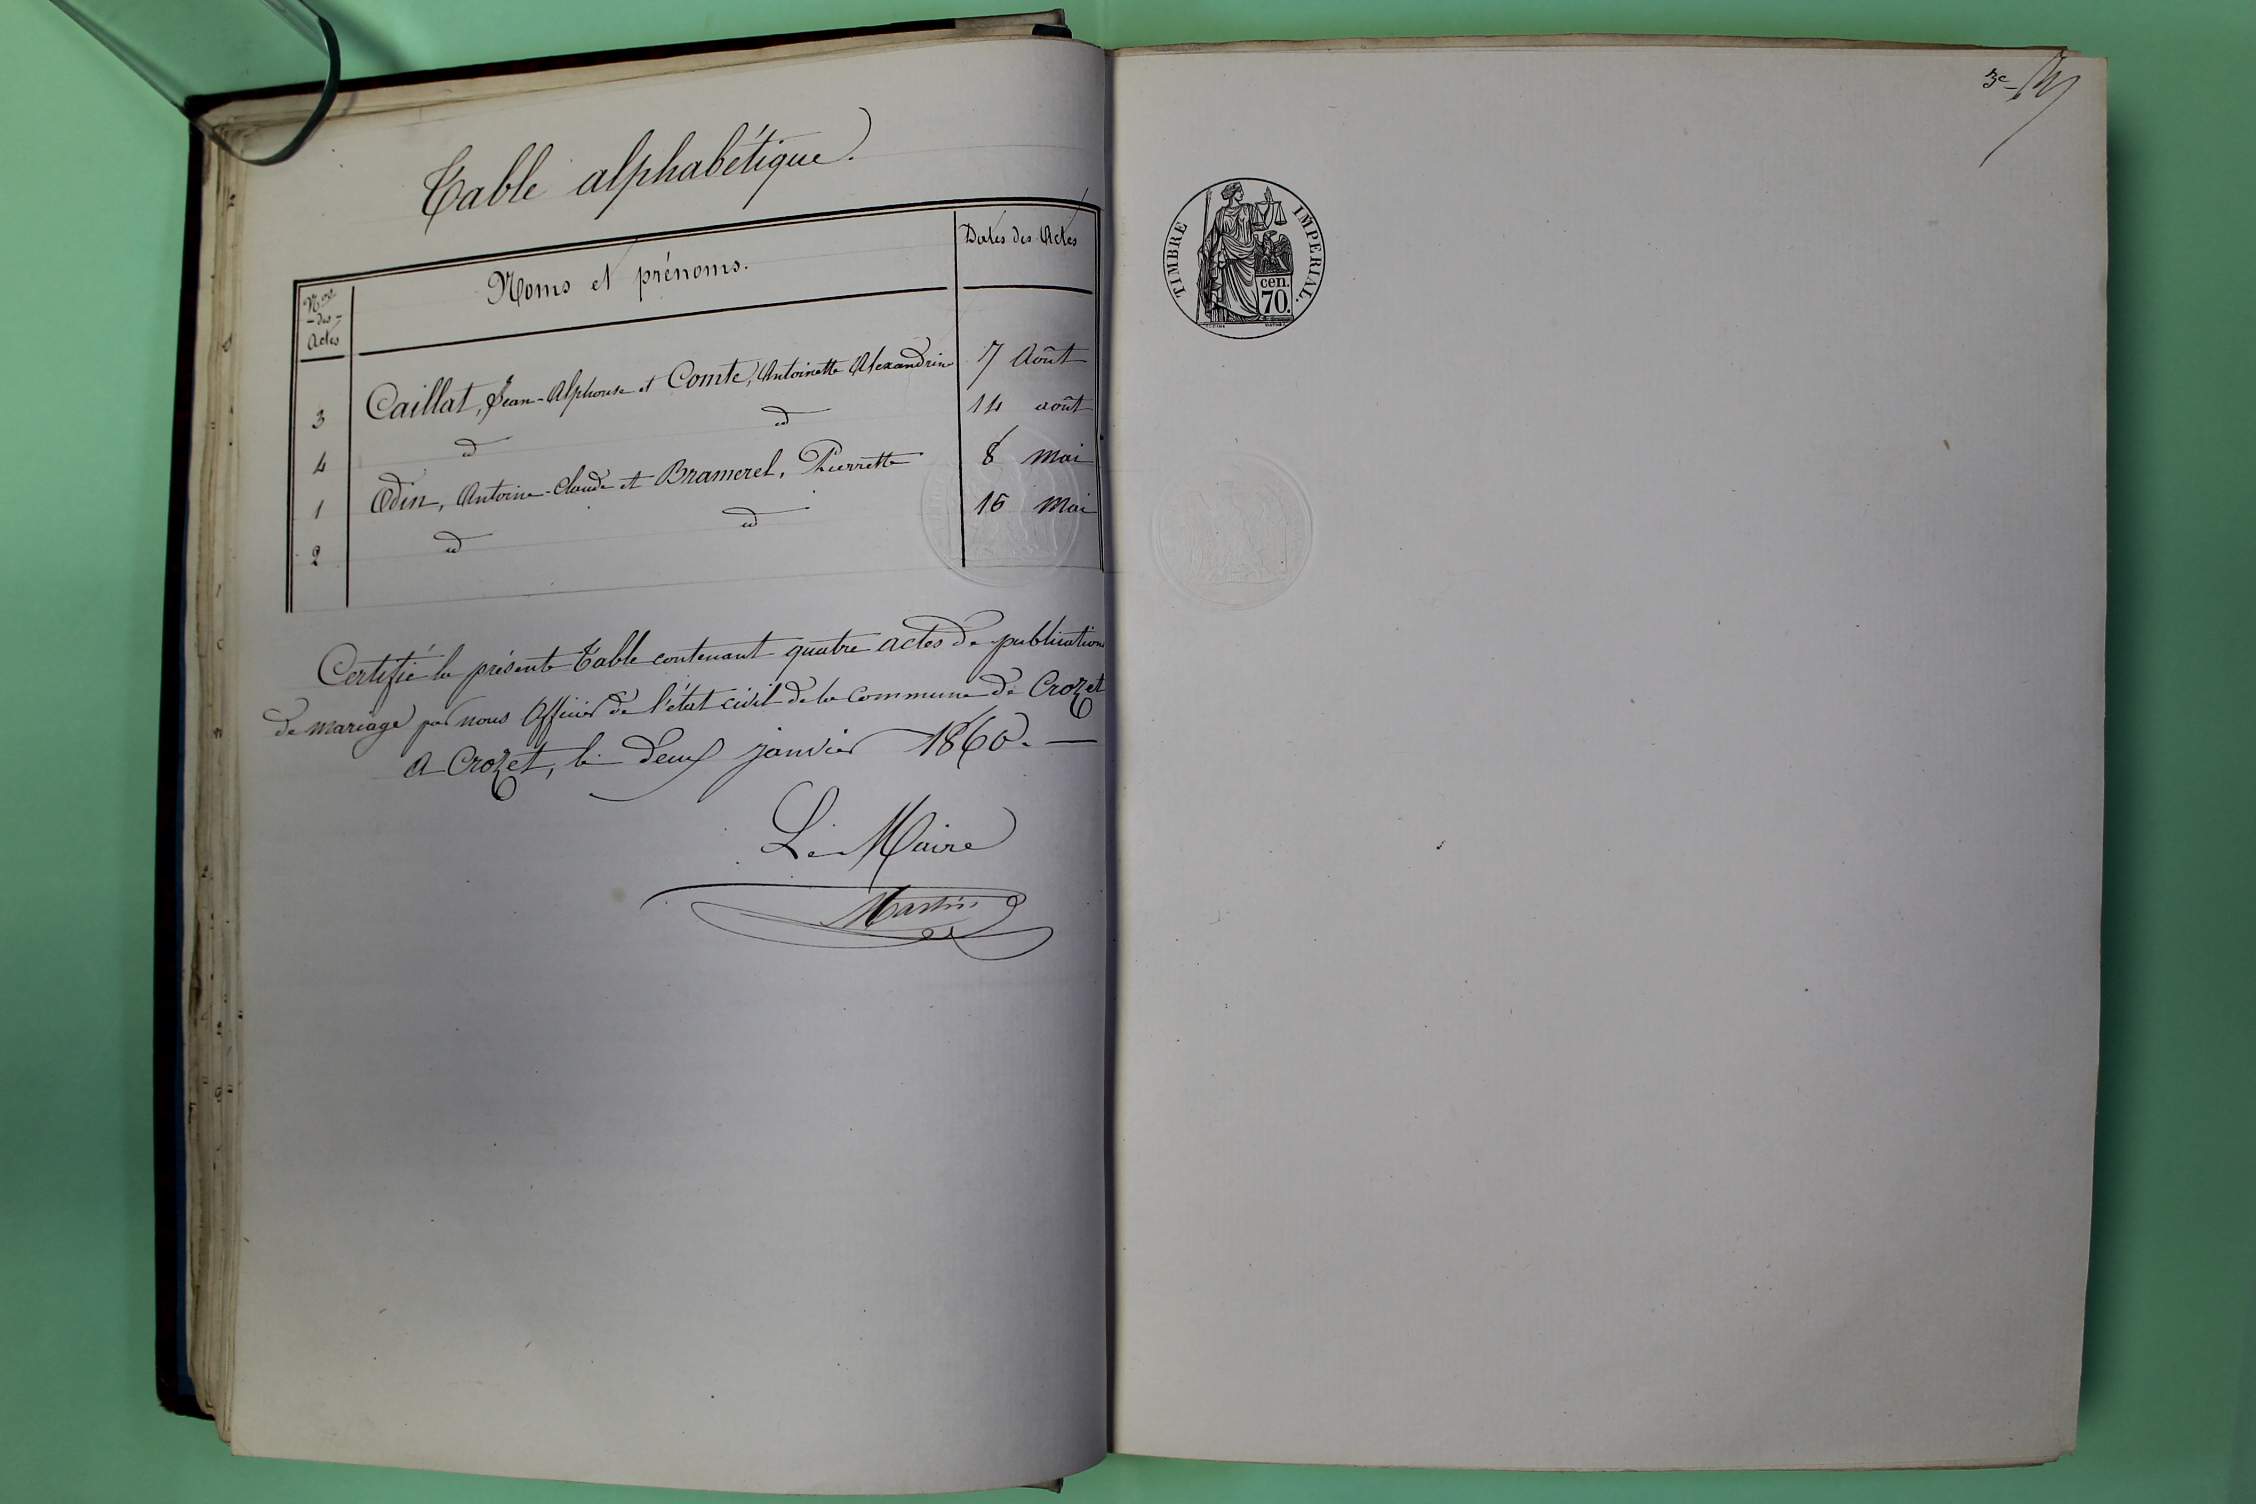 Table alphabétique.
Nos des Actes
Noms et prénoms.
Dates des Actes
3 Caillat, Jean-Alphonse et Comte, Antoinette Alexandrine 7 Août
4 id id 14 août
1 Odin, Antoine-Claude et Bramerel, Pierrette 8 Mai
2 id id 15 Mai
Certifié la présente Table contenant quatre actes de publication
de mariage par nous Officier de l'état civil de la commune de Crozet
A Crozet, le deux janvier 1860.
Le Maire
Martin
3e
TIMBRE IMPERIAL.
cen.
70.